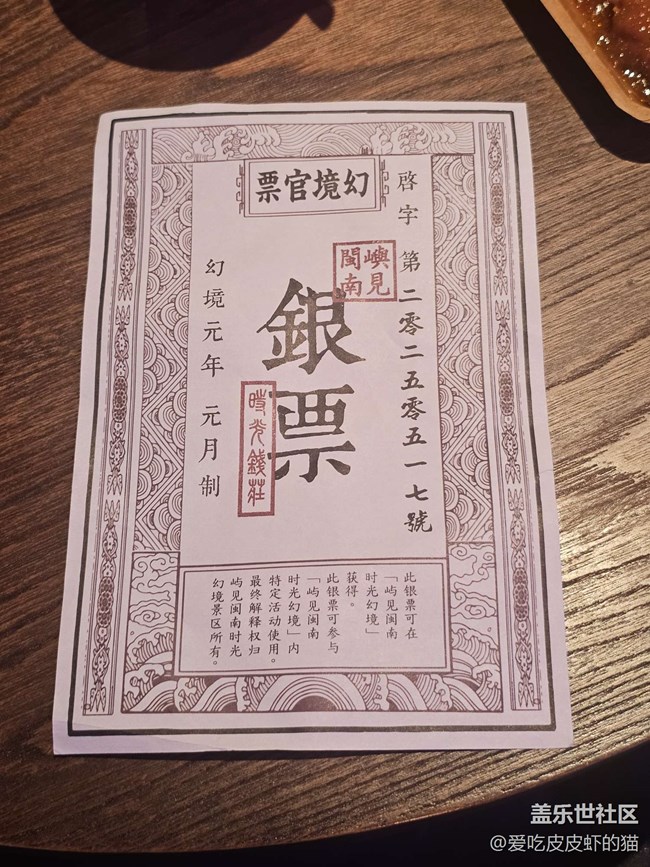 幻境官票
啓字 第二零二五零五一七號
嶼見
閩南
銀票
時光錢莊
幻境元年 元月制
此银票可在
「屿见闽南
时光幻境」
获得。
此银票可参与
「屿见闽南
时光幻境」内
特定活动使用。
最终解释权归
屿见闽南时光
幻境景区所有。
盖乐世社区
@爱吃皮皮虾的猫